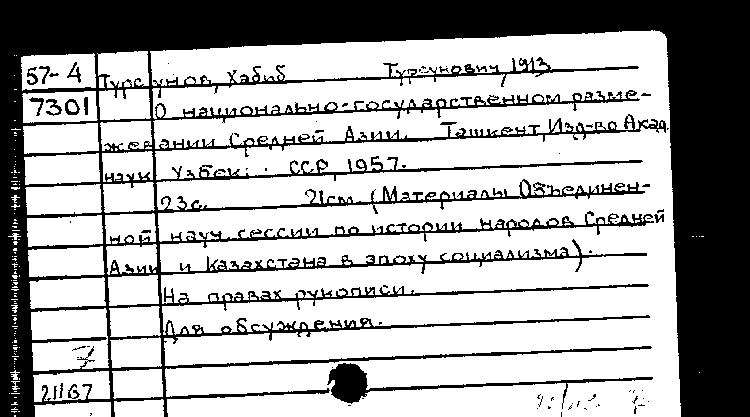 57-4 Турсунов, Хабиб Турсунович, 1913
7301 О национально-государственном разме-
жевании Средней Азии. Ташкент, Изд-во Акад.
наук Узбек. ССР, 1957.
23с. 21см. (Материалы Объединен-
ной науч. сессии по истории народов Средней
Азии и Казахстана в эпоху социализма).
На правах рукописи.
Для обсуждения.
7
21167